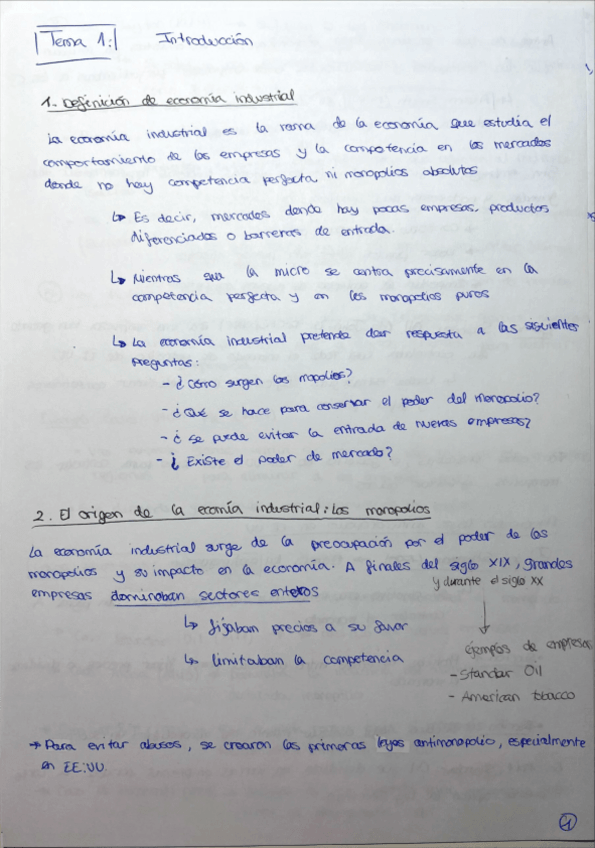 Tema 1: Introducción
1. Definición de economía industrial
La economía industrial es la rama de la economía que estudia el
comportamiento de las empresas y la competencia en los mercados
donde no hay competencia perfecta ni monopolios absolutos
↳ Es decir, mercados donde hay pocas empresas, productos
diferenciados o barreras de entrada.
↳ Mientras que la micro se centra precisamente en la
competencia perfecta y en los monopolios puros
↳ La economía industrial pretende dar respuesta a las siguientes
preguntas:
- ¿Cómo surgen los mopolios?
- ¿Qué se hace para conservar el poder del monopolio?
- ¿se puede evitar la entrada de nuevas empresas?
- ¿Existe el poder de mercado?
2. El origen de la econmía industrial: Los monopolios
La economía industrial surge de la preocupación por el poder de los
monopolios y su impacto en la economía. A finales del siglo XIX, grandes
y durante el siglo XX
empresas dominaban sectores enteros
↳ fijaban precios a su favor
↳ limitaban la competencia
ejemplos de empresas
- Standar Oil
- American tobacco
→ Para evitar abusos, se crearon las primeras leyes antimonopolio, especialmente
en EE:UU.
1